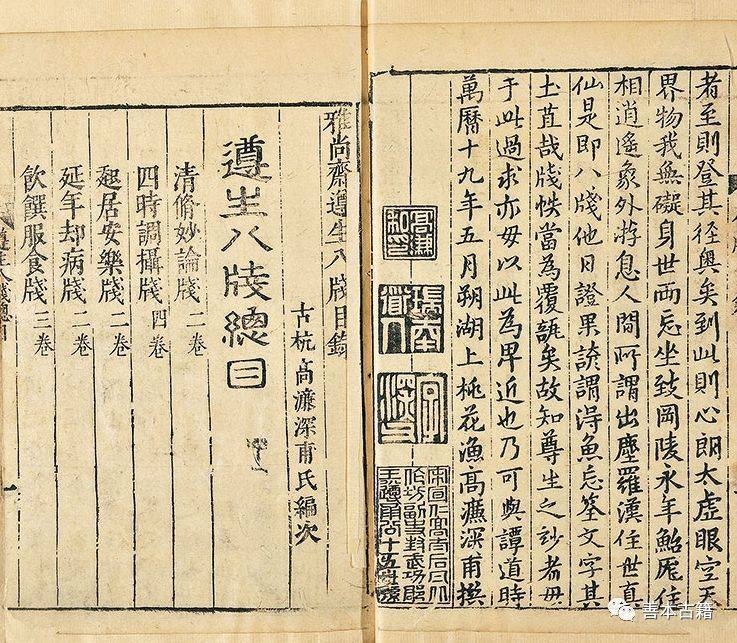 者至則登其徑奧矣到此則心朗太虛眼空天
界物我無礙身世兩忘坐致岡陵永年鮐住
相逍遙象外游息人間所謂出塵羅漢住世真
仙是即八牋他日證果諺謂得魚忘筌文字其
土苴哉牋帙當為覆瓿矣故知尊生之妙者毋
于此過求亦毋以此為卑近也乃可與譚道時
萬曆十九年五月朔湖上桃花漁高濂深甫撰
瑞南道人
雅尚齋遵生八牋目錄
古杭高濂深甫氏編次
遵生八牋總目
清脩妙論牋二卷
四時調攝牋四卷
起居安樂牋二卷
延年却病牋二卷
飲饌服食牋三卷
善本古籍